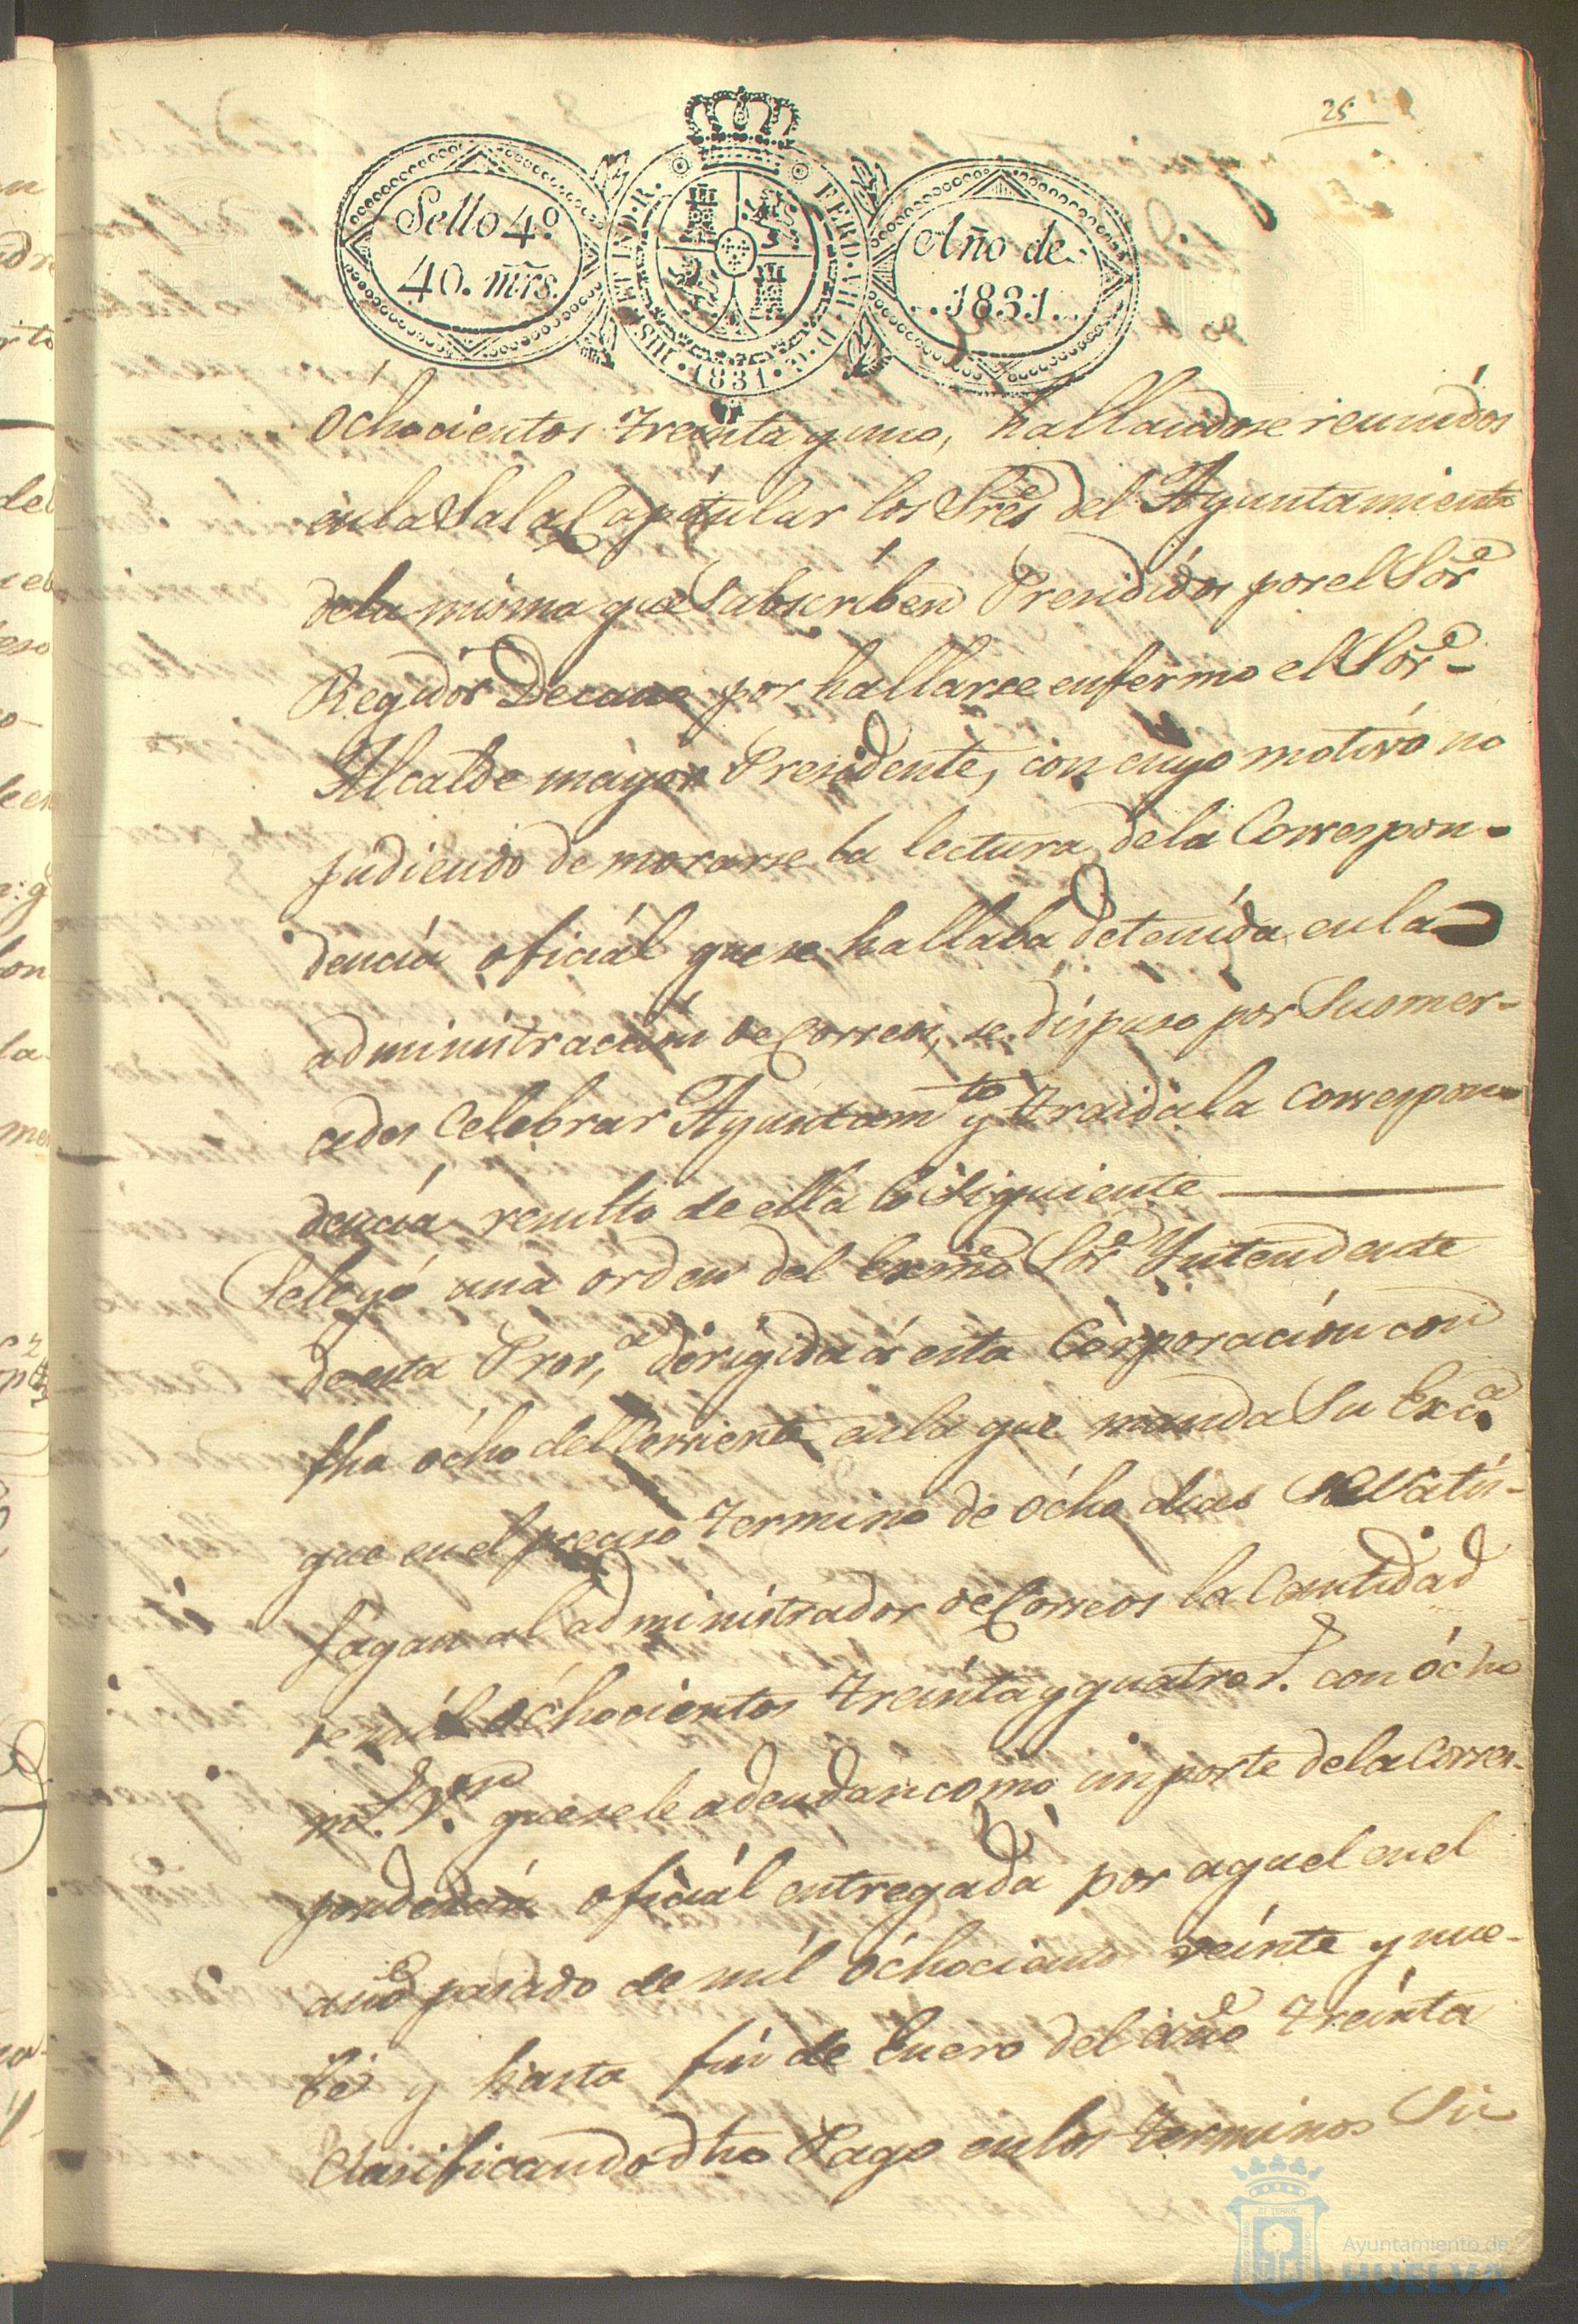 25
Sello 4º
40. mrs.
HIS. ET IND. R. FERD. VII. D. G. 1831
Año de
1831
óchocientos treinta y uno, hallandose reunidos
en la Sala Capitular los Sres del Ayuntamiento
dela misma que Subscriben Presididos por el Sor
Regidor Decano por hallarse enfermo el Sor
Alcalde mayor Presidente, con cuyo motivo no
pudiendo demorarse la lectura dela Correspon-
dencia oficiál que se hallaba detenida en la
administracion de Correos, se dispuso por Sus mer-
cedes Celebrar Ayuntamto y traida la correspon
dencia resulto de ella lo Siguiente
Se leyó una orden del Exmo Sor Yntendente
de esta Prova dirigida á esta Corporacion con
fha ócho del Corriente en la que manda Su Exca
que en el preciso termino de ócho dias se Satis-
fagan al administrador de Correos la Cantidad
de mil óchocientos treinta y quatro r.s con ócho
ms. vn que se le adeudan como importe dela Corres-
pondencia oficiál entregada por aquel en el
año pasado de mil óchociento veinte y nue-
be y hasta fin de Enero del año treinta
Clasificando dho Pago en los terminos Si
Ayuntamiento de
HUELVA